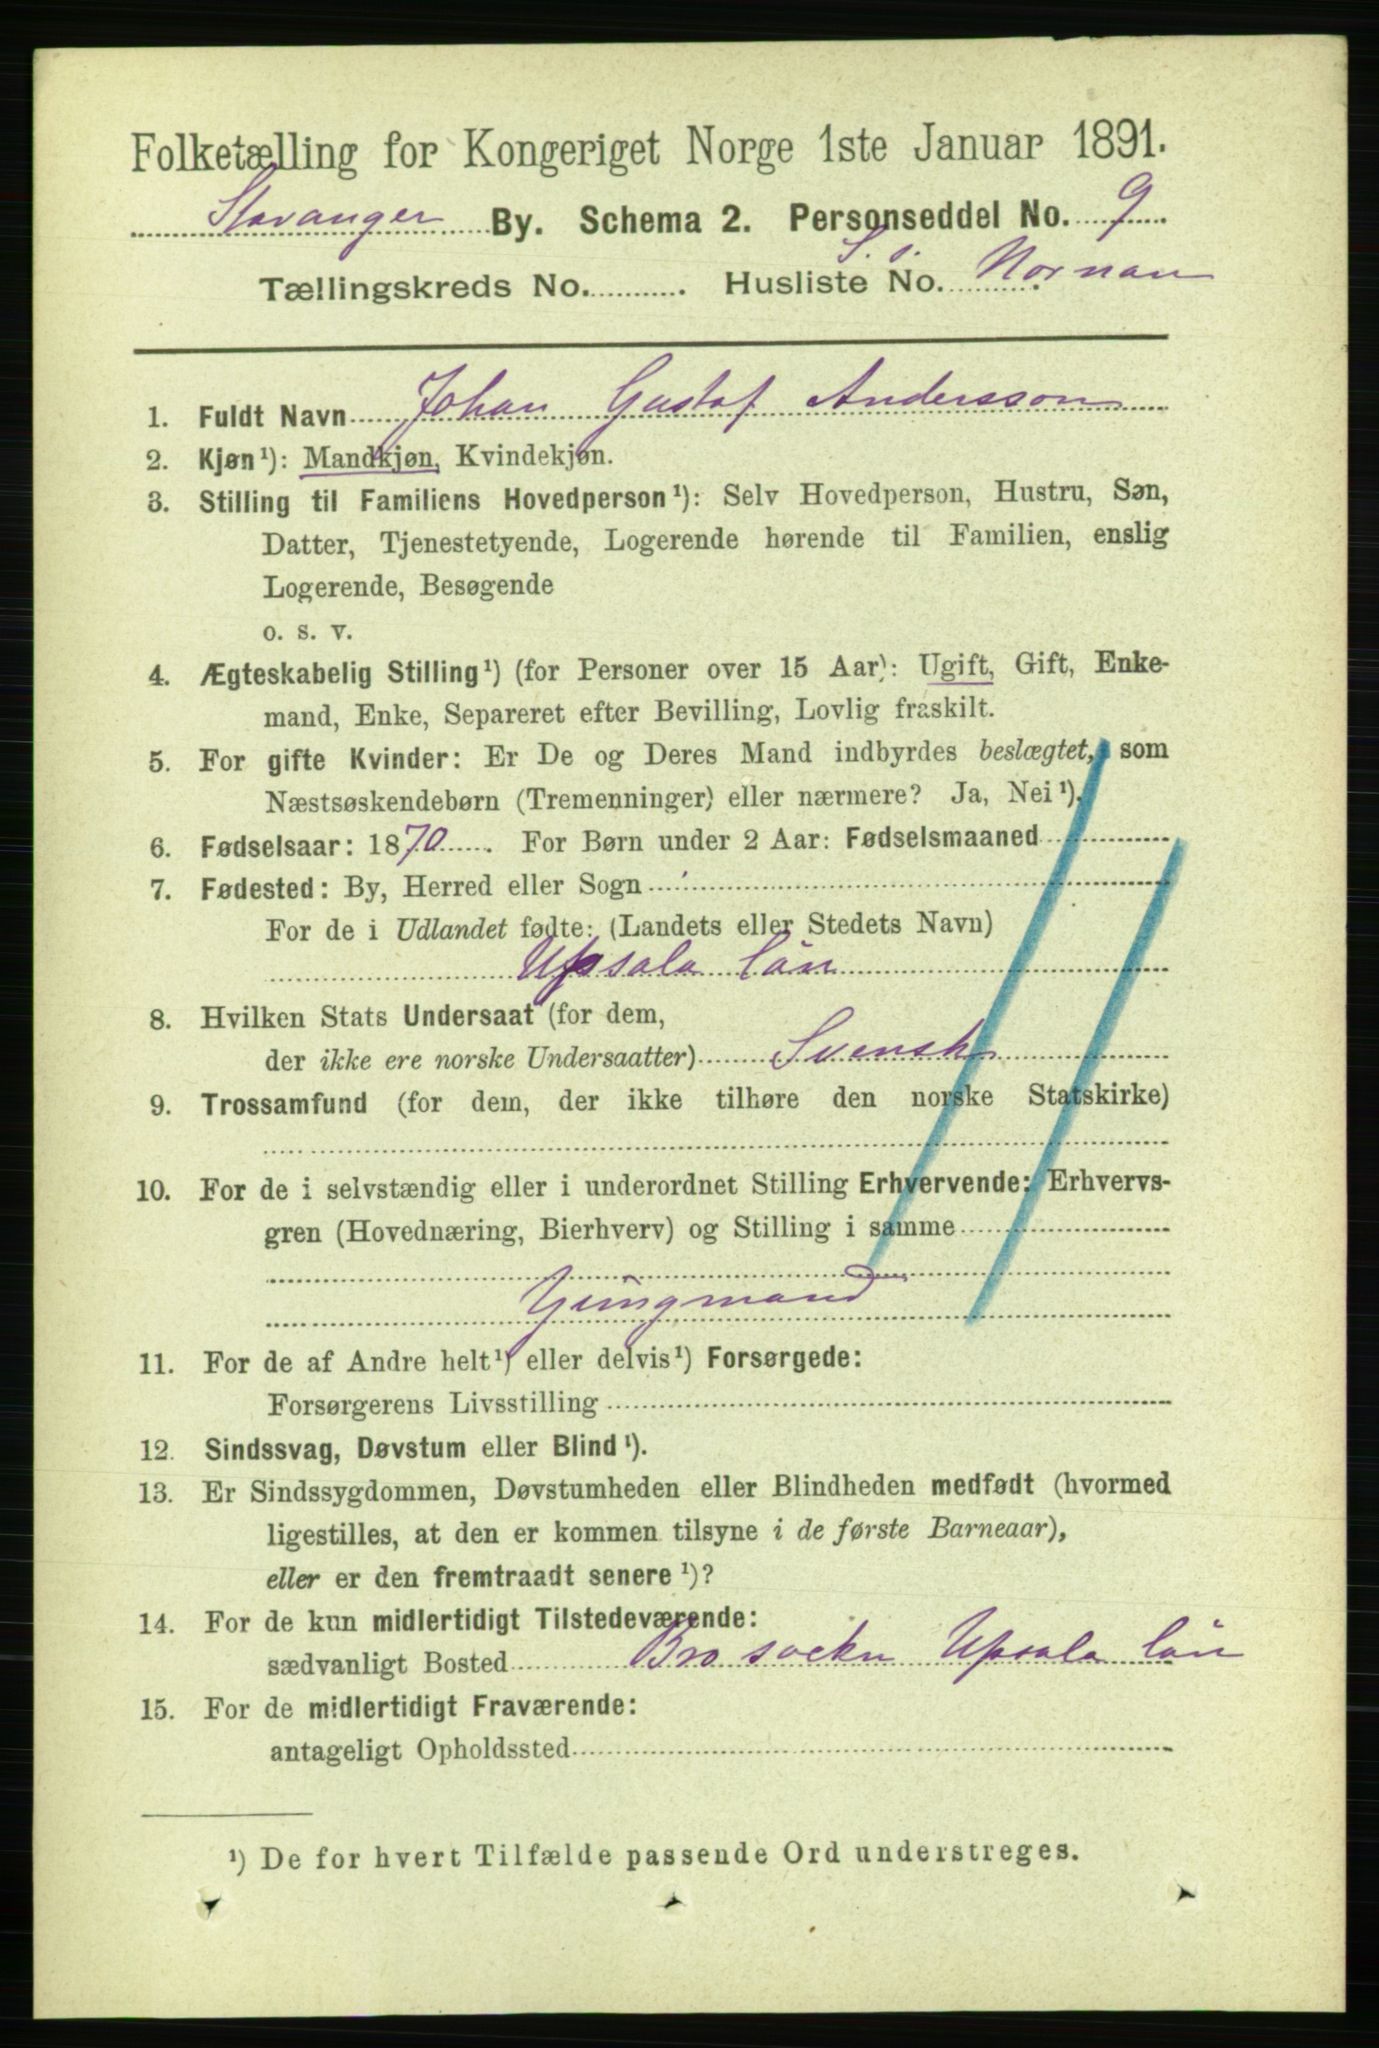 Folketælling for Kongeriget Norge 1ste Januar 1891.
Stavanger By. Schema 2. Personseddel No. 9
Tællingskreds No. Husliste No. S. s. Nornan
1. Fuldt Navn Johan Gustaf Andersson
2. Kjøn¹): Mandkjøn, Kvindekjøn.
3. Stilling til Familiens Hovedperson¹): Selv Hovedperson, Hustru, Søn,
Datter, Tjenestetyende, Logerende hørende til Familien, enslig
Logerende, Besøgende
o. s. v.
4. Ægteskabelig Stilling¹) (for Personer over 15 Aar): Ugift, Gift, Enke-
mand, Enke, Separeret efter Bevilling, Lovlig fraskilt.
5. For gifte Kvinder: Er De og Deres Mand indbyrdes beslægtet, som
Næstsøskendebørn (Tremenninger) eller nærmere? Ja, Nei¹).
6. Fødselsaar: 1870. For Børn under 2 Aar: Fødselsmaaned
7. Fødested: By, Herred eller Sogn
For de i Udlandet fødte: (Landets eller Stedets Navn)
Upsala län
8. Hvilken Stats Undersaat (for dem,
der ikke ere norske Undersaatter) Svensk
9. Trossamfund (for dem, der ikke tilhøre den norske Statskirke)
10. For de i selvstændig eller i underordnet Stilling Erhvervende: Erhvervs-
gren (Hovednæring, Bierhverv) og Stilling i samme
Yungmand
11. For de af Andre helt¹) eller delvis¹) Forsørgede:
Forsørgerens Livsstilling
12. Sindssvag, Døvstum eller Blind¹).
13. Er Sindssygdommen, Døvstumheden eller Blindheden medfødt (hvormed
ligestilles, at den er kommen tilsyne i de første Barneaar),
eller er den fremtraadt senere¹)?
14. For de kun midlertidigt Tilstedeværende:
sædvanligt Bosted Bro sockn Upsala län
15. For de midlertidigt Fraværende:
antageligt Opholdssted
¹) De for hvert Tilfælde passende Ord understreges.